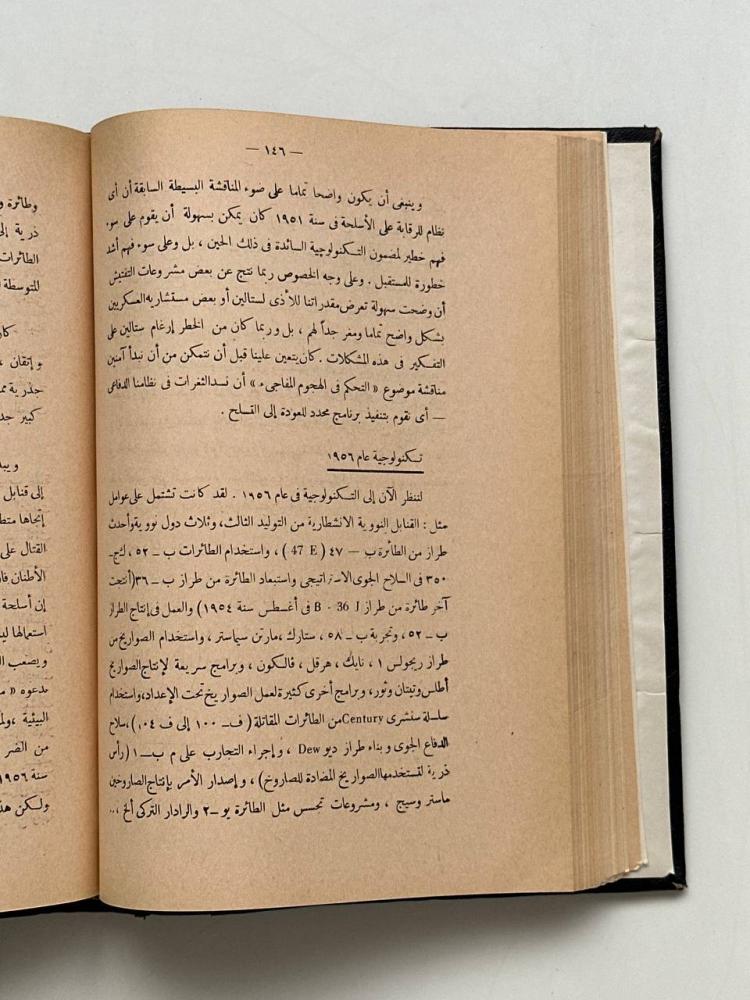 — ١٤٦ —
وينبغى أن يكون واضحا تماما على ضوء المناقشة البسيطة السابقة أن أى
نظام للرقابة على الأسلحة فى سنة ١٩٥١ كان يمكن بسهولة أن يقوم على سوء
فهم خطير لمضمون التكنولوجية السائدة فى ذلك الحين ، بل وعلى سوء فهم أشد
خطورة للمستقبل . وعلى وجه الخصوص ربما نتج عن بعض مشروعات التفتيش
أن وضحت سهولة تعرض مقدراتنا للأذى لستالين أو بعض مستشاريه العسكريين
بشكل واضح تماما ومغر جداً لهم ، بل وربما كان من الخطر إرغام ستالين على
التفكير فى هذه المشكلات . كان يتعين علينا قبل أن نتمكن من أن نبدأ آمنين
مناقشة موضوع « التحكم فى الهجوم المفاجىء » أن نسد الثغرات فى نظامنا الدفاعى
— أى نقوم بتنفيذ برنامج محدد للعودة إلى التسلح .
تكنولوجية عام ١٩٥٦
لننظر الآن إلى التكنولوجية فى عام ١٩٥٦ . لقد كانت تشتمل على عوامل
مثل : القنابل النووية الانشطارية من التوليد الثالث، وثلاث دول نووية وأحدث
طراز من الطائرة ب — ٤٧ ( 47 E ) ، واستخدام الطائرات ب — ٥٢ ، ك ج —
٣٥٠ فى السلاح الجوى الاستراتيجى واستبعاد الطائرة من طراز ب — ٣٦ (أنتجت
آخر طائرة من طراز B - 36 J فى أغسطس سنة ١٩٥٤) والعمل فى إنتاج الطراز
ب — ٥٢ ، وتجربة ب — ٥٨ ، ستارك ، مارتن سيماستر ، واستخدام الصواريخ من
طراز ريجولس ١ ، نايك ، هرقل ، فالكون ، وبرامج سريعة لإنتاج الصواريخ
أطلس وتيتان وثور، وبرامج أخرى كثيرة لعمل الصواريخ تحت الإعداد، واستخدام
سلسلة سنشرى Century من الطائرات المقاتلة ( ف — ١٠٠ إلى ف ١٠٤ ) ، سلاح
الدفاع الجوى وبناء طراز ديو Dew ، وإجراء التجارب على م ب — ١ ( رأس
ذرية لتستخدمها الصواريخ المضادة للصاروخ ) ، وإصدار الأمر بإنتاج الصاروخين
ماستر وسيج ، ومشروعات تجسس مثل الطائرة يو — ٢ والرادار التركى ألخ ...